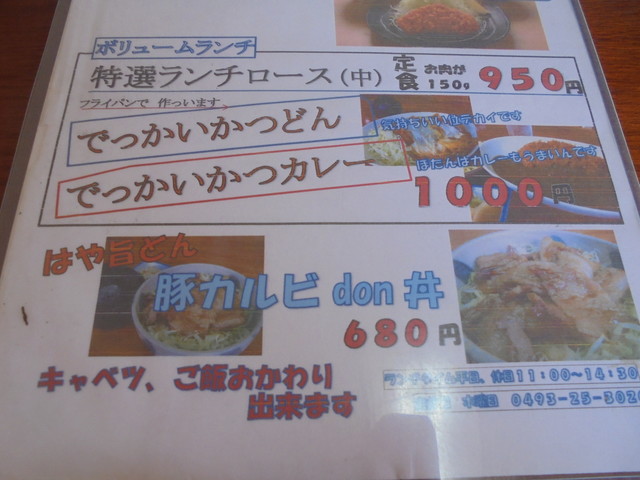 ボリュームランチ
特選ランチロース(中)定食 お肉が150g 950円
フライパンで 作っています。
でっかいかつどん
気持ちいい位デカイです
でっかいかつカレー
ぼたんはカレーもうまいんです
1000円
はや旨どん
豚カルビdon丼
680円
キャベツ、ご飯おかわり
出来ます
ランチタイム平日、休日11:00～14:30
木曜日 0493-25-302